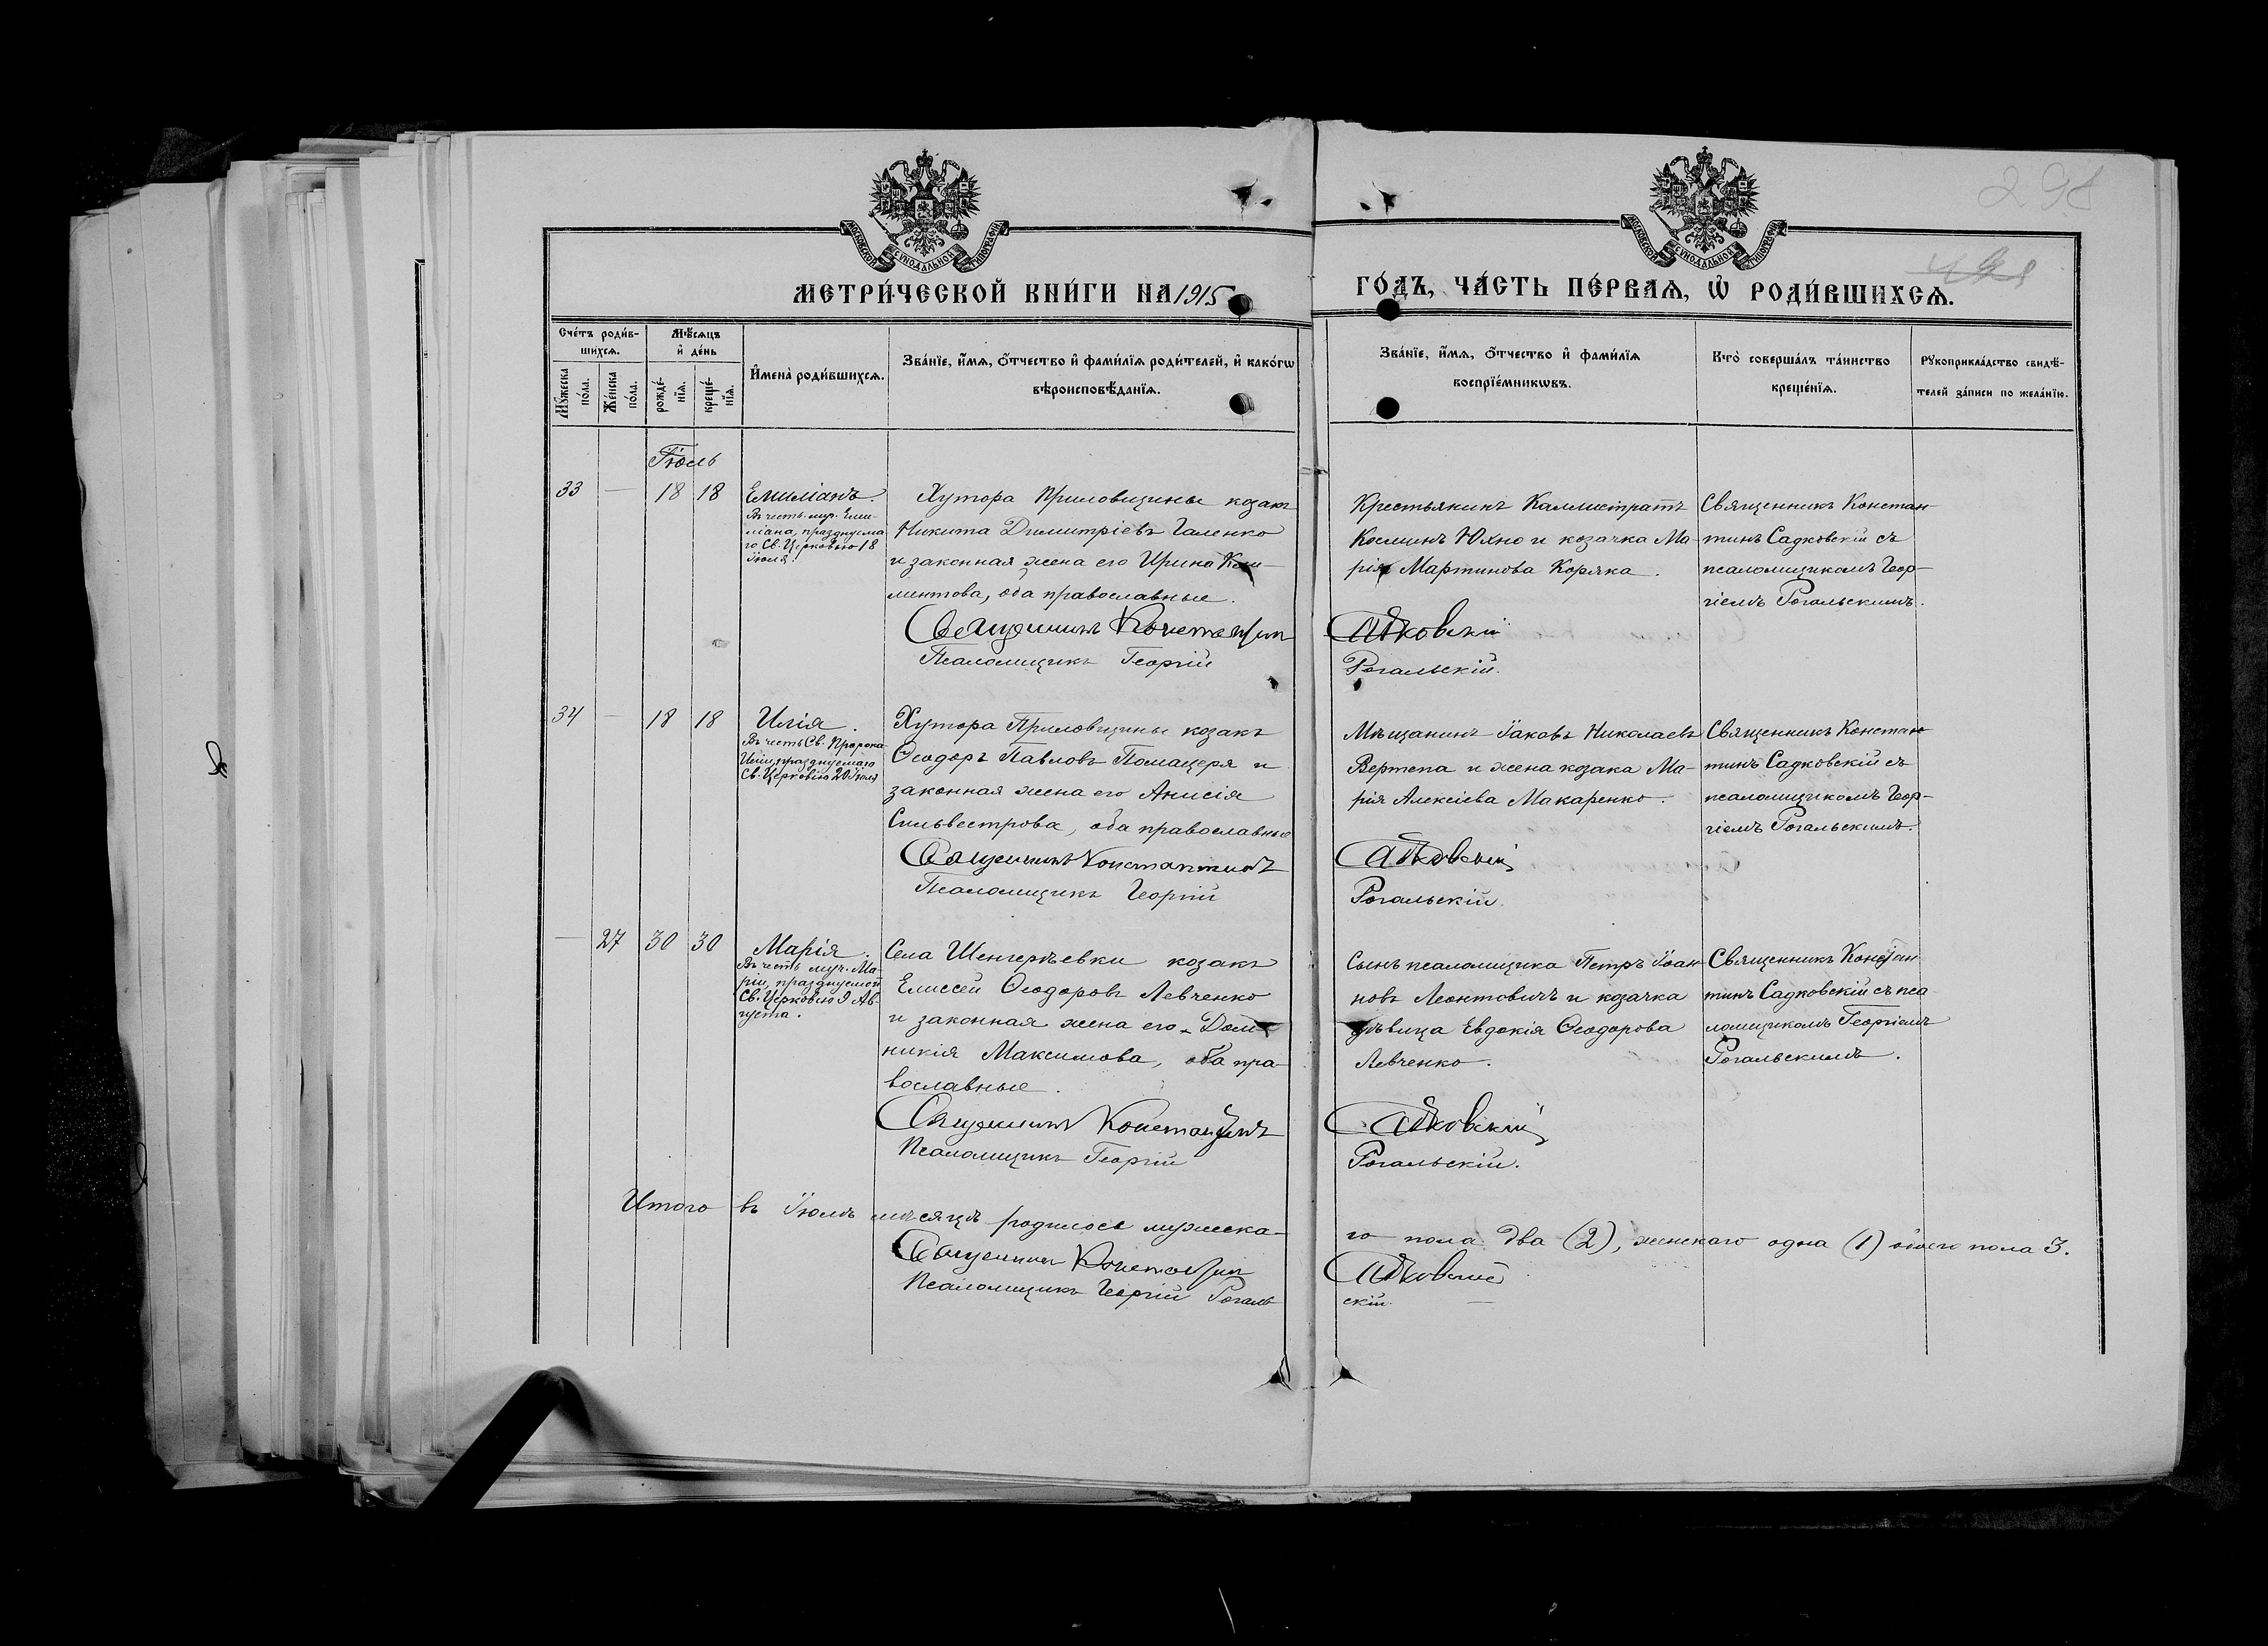 298
МОСКОВСКОЙ СѴНОДАЛЬНОЙ ТИПОГРАФІИ
МОСКОВСКОЙ СѴНОДАЛЬНОЙ ТИПОГРАФІИ
МЕТРИ́ЧЕСКОЙ КНИ́ГИ НА 1915 ГО́ДЪ, ЧА́СТЬ ПЕ́РВАѦ, Ѡ҆ РОДИ́ВШИХСѦ.
Сче́тъ роди́в-
шихсѧ.
Мѣ́сѧцъ
и҆ де́нь
Мꙋ́жеска
по́ла.
Же́нска
по́ла.
рожде́-
нїѧ.
креще́-
нїѧ.
И҆мена̀ роди́вшихсѧ.
Зва́нїе, и҆́мѧ, ѻ҆́тчество и҆ фами́лїѧ роди́телей, и҆ како́гѡ
вѣроисповѣ́данїѧ.
Зва́нїе, и҆́мѧ, ѻ҆́тчество и҆ фами́лїѧ
воспрїе́мникѡвъ.
Кто̀ соверша́лъ та́инство
креще́нїѧ.
Рꙋкоприкла́дство свидѣ́-
телей за́писи по жела́нїю.
Іюль
33 — 18 18
Емиліанъ.
Въ честь муч. Еми-
ліана, празднуема
го Св. Церковью 18
Іюля.
Хутора Приловщины козакъ
Никита Димитріевъ Галенко
и законная жена его Ирина Кли-
ментова, оба православные.
Священникъ Константинъ
Псаломщикъ Георгій
Крестьянинъ Каллистратъ
Косминъ Юхно и козачка Ма-
рія Мартинова Коряка.
Садковскій
Рогальскій.
Священникъ Констан-
тинъ Садковскій съ
псаломщикомъ Геор-
гіемъ Рогальскимъ.
34 — 18 18
Илія.
Въ честь Св. Пророка
Иліи, празднуемаго
Св. Церковію 20 Іюля
Хутора Приловщины козакъ
Ѳеодоръ Павловъ Помацеря и
законная жена его Анисія
Сильвестрова, оба православные
Священникъ Константинъ
Псаломщикъ Георгій
Мѣщанинъ Іаковъ Николаевъ
Вертепа и жена козака Ма-
рія Алексіева Макаренко.
Садковскій
Рогальскій.
Священникъ Констан
тинъ Садковскій съ
псаломщикомъ Геор-
гіемъ Рогальскимъ.
— 27 30 30
Марія.
Въ честь муч. Ма-
ріи, празднуемой
Св. Церковію 9 Ав-
густа.
Села Шенгерѣевки козакъ
Елиссей Ѳеодоровъ Левченко
и законная жена его Дом-
никія Максимова, оба пра-
вославные.
Священникъ Константинъ
Псаломщикъ Георгій
Сынъ псаломщика Петръ Іоан-
новъ Леонтовичъ и козачка
дѣвица Евдокія Ѳеодорова
Левченко.
Садковскій
Рогальскій.
Священникъ Констан
тинъ Садковскій съ пса
ломщикомъ Георгіемъ
Рогальскимъ.
Итого въ Іюлѣ мѣсяцѣ родилось мужеска-
го пола два (2), женскаго одна (1) обоего пола 3.
Священникъ Константинъ Садковскій
Псаломщикъ Георгій Рогаль
скій.